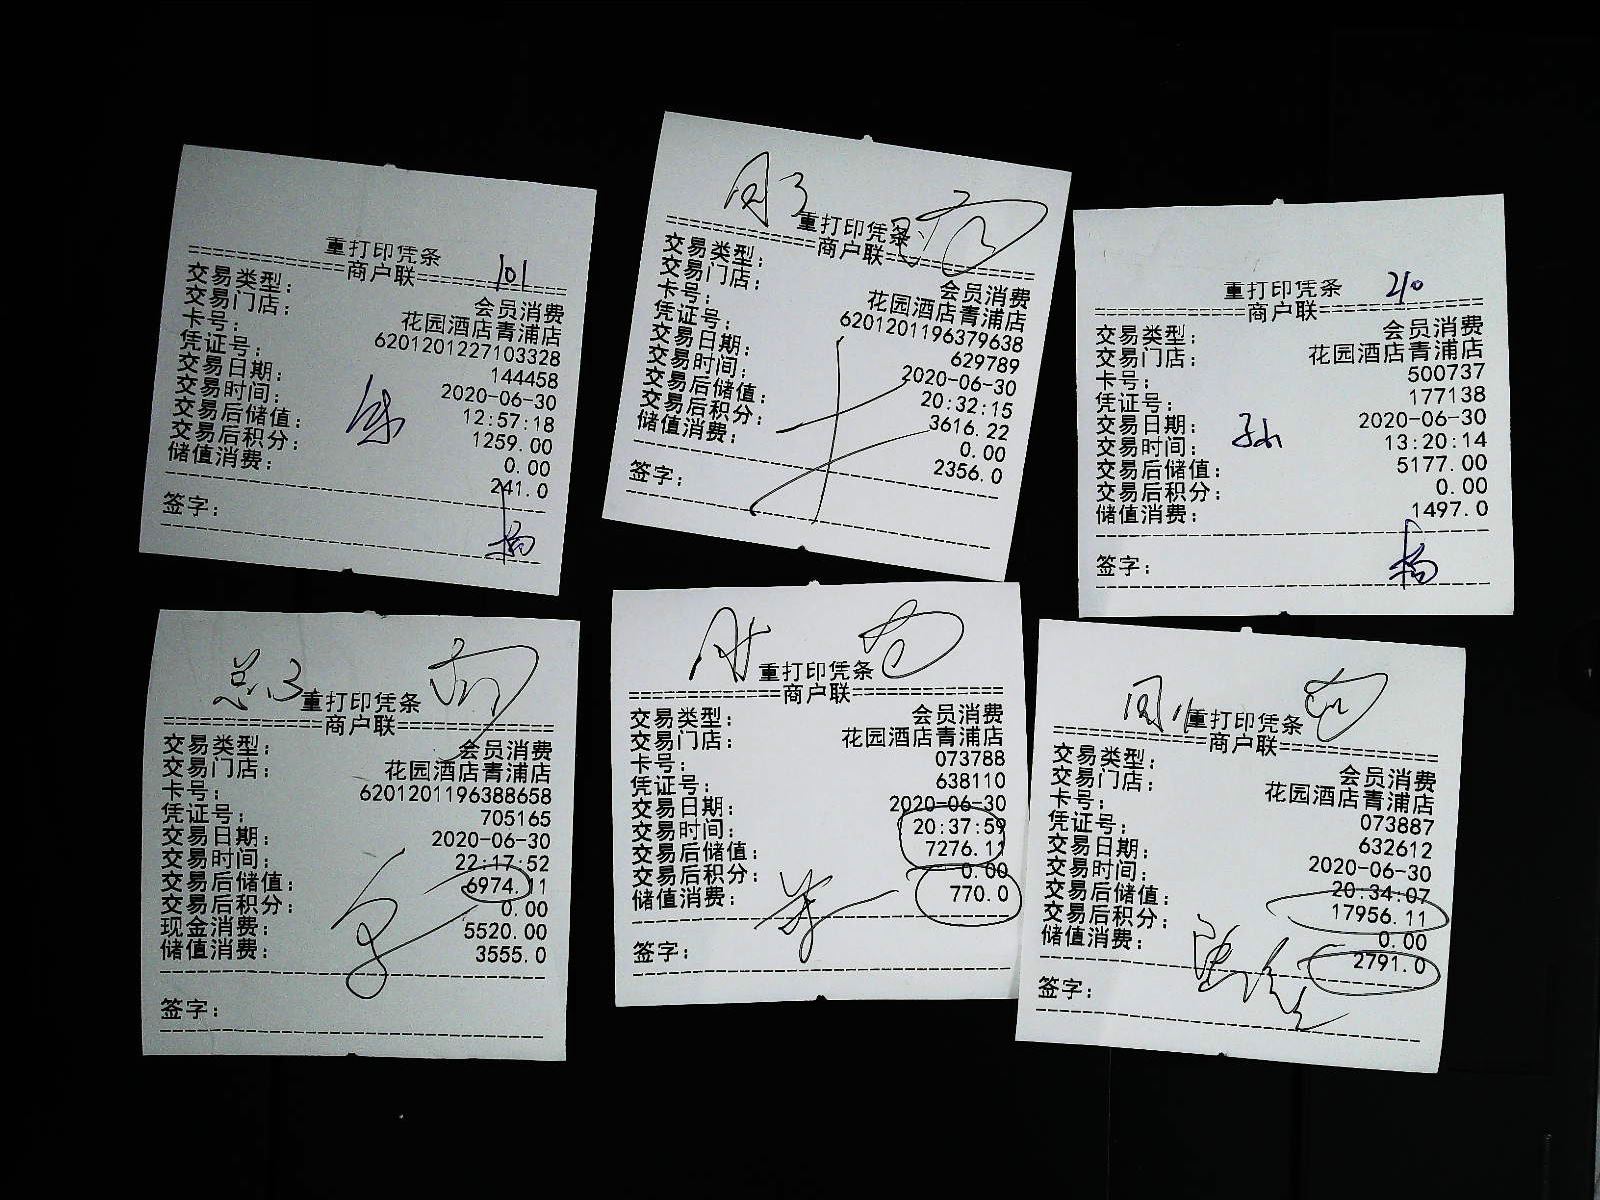 重打印凭条
101
==============商户联==============
交易类型:
会员消费
交易门店:
花园酒店青浦店
卡号:
6201201227103328
凭证号:
144458
交易日期:
2020-06-30
交易时间:
12:57:18
交易后储值:
1259.00
交易后积分:
0.00
储值消费:
241.0
签字:
杨
重打印凭条
==============商户联==============
交易类型:
会员消费
交易门店:
花园酒店青浦店
卡号:
6201201196379638
凭证号:
629789
交易日期:
2020-06-30
交易时间:
20:32:15
交易后储值:
3616.22
交易后积分:
0.00
储值消费:
2356.0
签字:
重打印凭条
210
==============商户联==============
交易类型:
会员消费
交易门店:
花园酒店青浦店
卡号:
500737
凭证号:
177138
交易日期:
2020-06-30
交易时间:
13:20:14
交易后储值:
5177.00
交易后积分:
0.00
储值消费:
1497.0
孙
签字:
杨
重打印凭条
==============商户联==============
交易类型:
会员消费
交易门店:
花园酒店青浦店
卡号:
6201201196388658
凭证号:
705165
交易日期:
2020-06-30
交易时间:
22:17:52
交易后储值:
6974.11
交易后积分:
0.00
现金消费:
5520.00
储值消费:
3555.0
签字:
重打印凭条
==============商户联==============
交易类型:
会员消费
交易门店:
花园酒店青浦店
卡号:
073788
凭证号:
638110
交易日期:
2020-06-30
交易时间:
20:37:59
交易后储值:
7276.11
交易后积分:
0.00
储值消费:
770.0
签字:
重打印凭条
==============商户联==============
交易类型:
会员消费
交易门店:
花园酒店青浦店
卡号:
073887
凭证号:
632612
交易日期:
2020-06-30
交易时间:
20:34:07
交易后储值:
17956.11
交易后积分:
0.00
储值消费:
2791.0
签字: